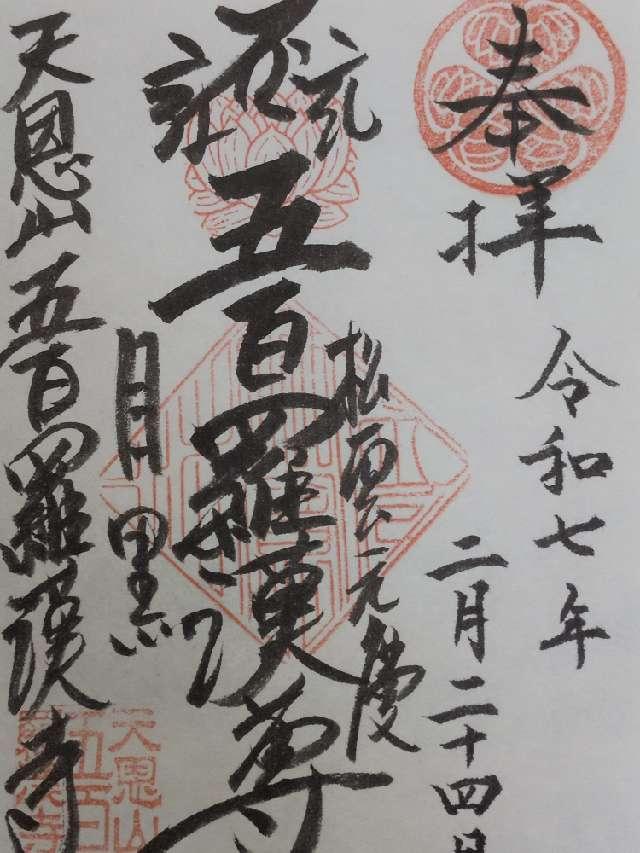 奉拝
令和七年
二月二十四日
松雲元慶
五百羅漢尊
目黒
天恩山五百羅漢寺
天恩山
五百
羅漢寺